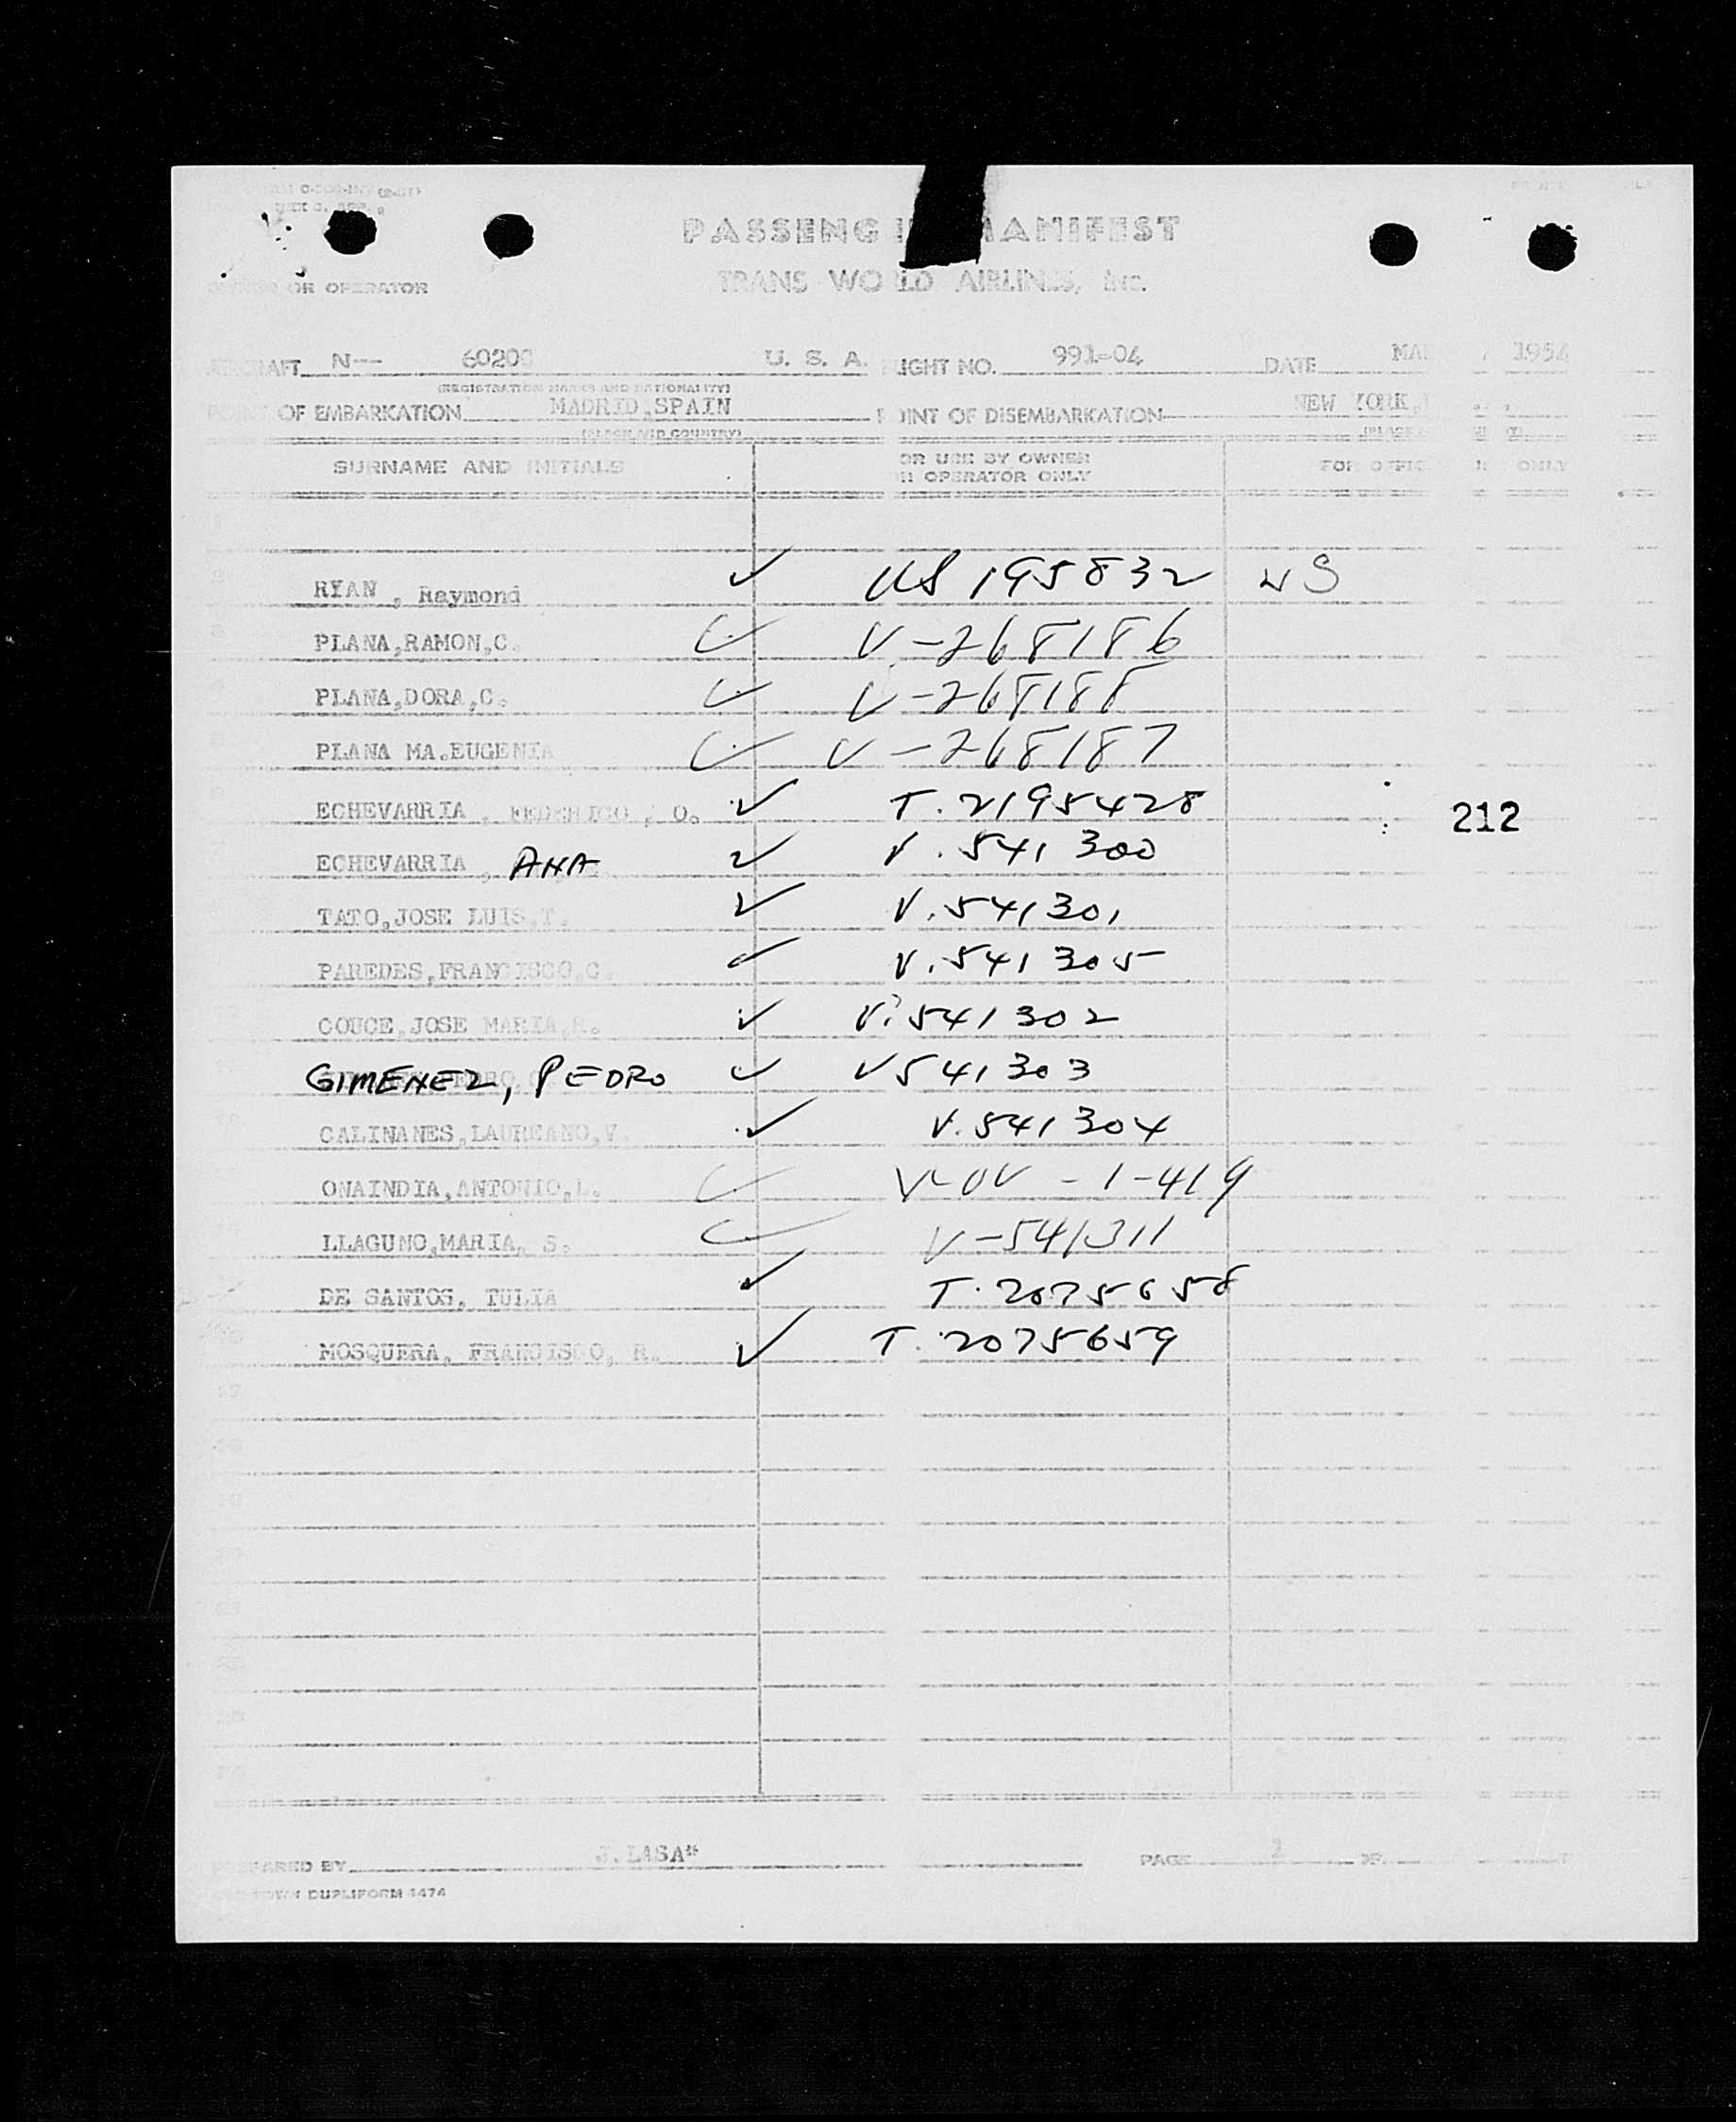 PASSENG MANIFEST
TRANS WORLD AIRLINES, Inc.
OR OPERATOR
N-- 60200 U. S. A. FLIGHT NO. 991-04 DATE 1954
(REGISTRATION MARKS AND NATIONALITY)
OF EMBARKATION MADRID,SPAIN POINT OF DISEMBARKATION NEW YORK,
(PLACE AND COUNTRY)
SURNAME AND INITIALS FOR USE BY OWNER OR OPERATOR ONLY FOR OFFICIAL USE ONLY
RYAN , Raymond ✓ US 195832 US
PLANA,RAMON,C. ✓ V-268186
PLANA,DORA,C. ✓ V-268188
PLANA MA.EUGENIA ✓ V-268187
ECHEVARRIA , FEDERICO , O. ✓ T.2195428
212
ECHEVARRIA , ANA ✓ V.541300
TATO,JOSE LUIS,T. ✓ V.541301
PAREDES,FRANCISCO,C. ✓ V.541305
COUCE,JOSE MARIA,R. ✓ V.541302
GIMENEZ, PEDRO ✓ V541303
CALINANES,LAUREANO,V. ✓ V.541304
ONAINDIA,ANTONIO,L. ✓ V-OV-1-419
LLAGUNO,MARIA, S. ✓ V-541311
DE SANTOS, TULIA ✓ T.2075658
MOSQUERA, FRANCISCO, R. ✓ T.2075659
PREPARED BY J.LASA* PAGE 1 OF
DUPLIFORM 1474